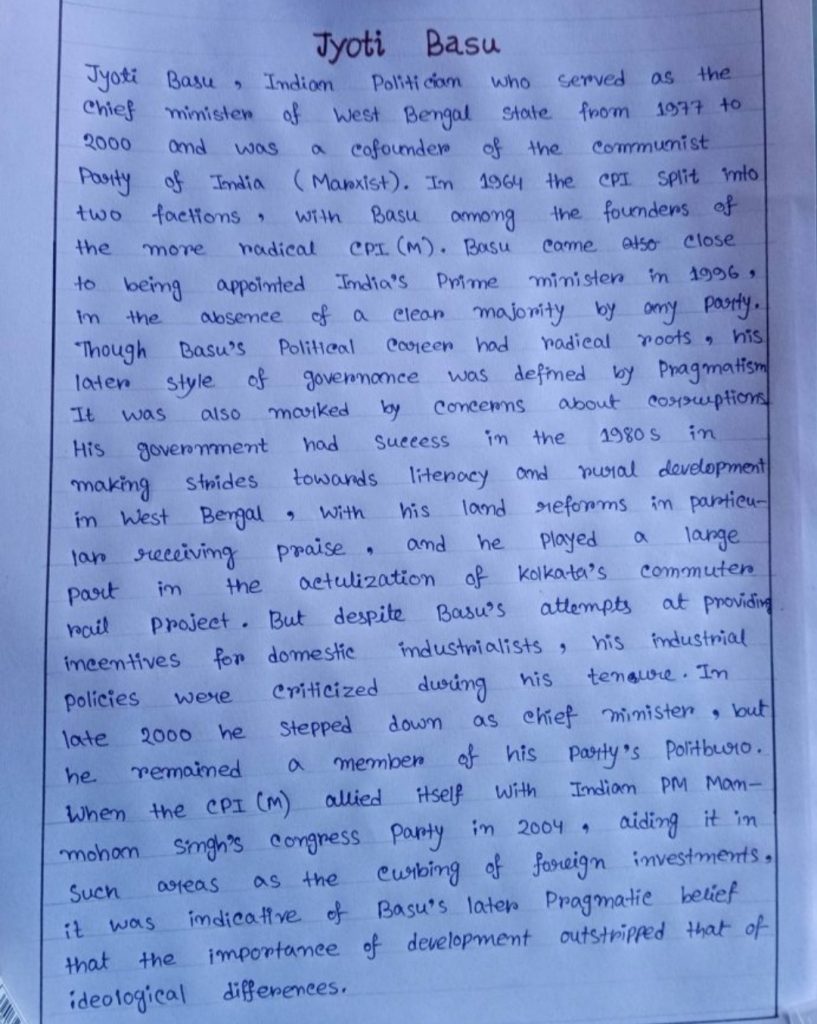 Jyoti Basu
Jyoti Basu, Indian Politician who served as the
Chief minister of West Bengal state from 1977 to
2000 and was a cofounder of the communist
Party of India (Marxist). In 1964 the CPI split into
two factions, with Basu among the founders of
the more radical CPI (M). Basu came also close
to being appointed India's Prime minister in 1996,
in the absence of a clear majority by any party.
Though Basu's Political career had radical roots, his
later style of governance was defined by Pragmatism
It was also marked by concerns about corruptions
His government had success in the 1980s in
making strides towards literacy and rural development
in West Bengal, with his land reforms in particu-
lar receiving praise, and he played a large
part in the actulization of Kolkata's commuter
rail project. But despite Basu's attempts at providing
incentives for domestic industrialists, his industrial
policies were criticized during his tenure. In
late 2000 he stepped down as chief minister, but
he remained a member of his party's Politburo.
When the CPI (M) allied itself with Indian PM Man-
mohan Singh's congress party in 2004, aiding it in
such areas as the curbing of foreign investments,
it was indicative of Basu's later Pragmatic belief
that the importance of development outstripped that of
ideological differences.